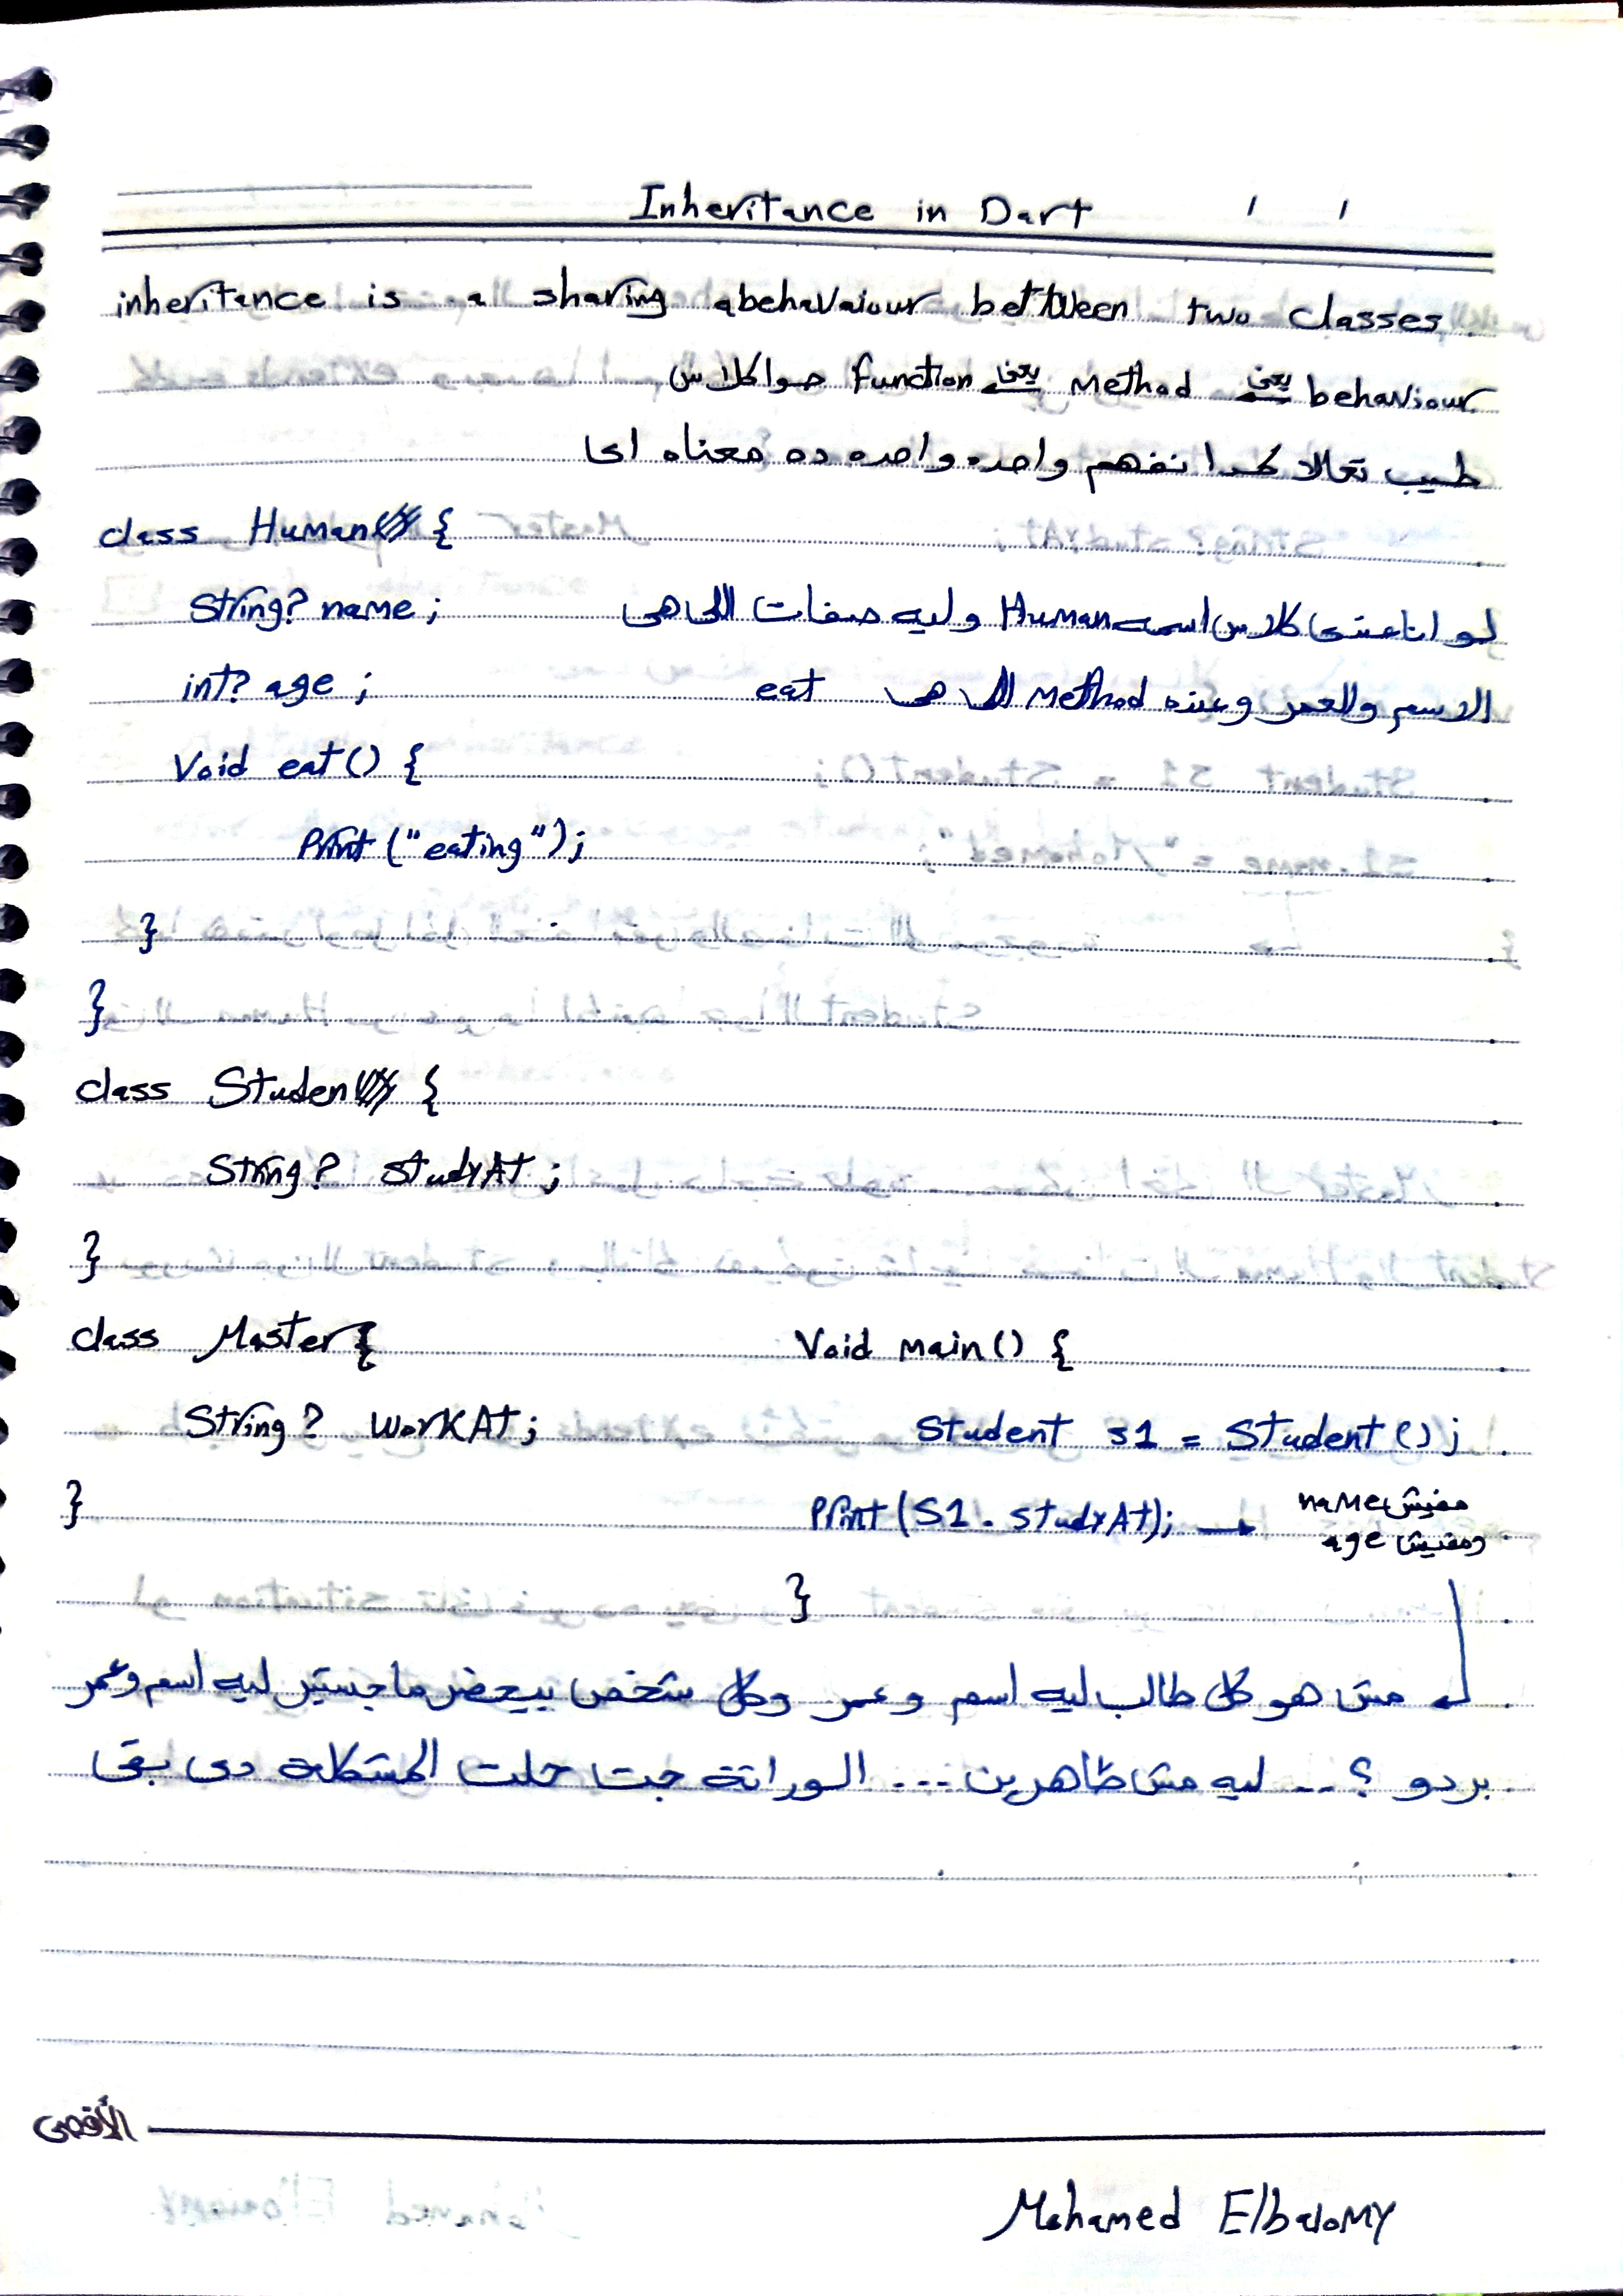 Inheritance in Dart / /
inheritence is a sharing abehavaiour between two classes
behaviour يعنى Method يعنى function جوا كلاس
طيب تعالا كدا نفهم واحده واحده ده معناه اى
class Human {
String? name ;
لو انا عندى كلاس اسمه Human وليه صفات اللى هى
int? age ;
الاسم والعمر وعنده Method اللى هى eat
Void eat() {
Print ("eating");
}
}
class Studen {
String? studyAt ;
}
class Master {
String? WorkAt ;
}
Void main() {
Student s1 = Student() ;
Print (S1 . studyAt); → مفيش name
ومفيش age
}
مش هو كل طالب ليه اسم وعمر وكل شخص بيحضر ماجستير ليه اسم وعمر
بردو ؟ .. ليه مش ظاهرين ... الوراثة جت حلت المشكلة دى بقى
الأقصى
Mohamed Elbalomy